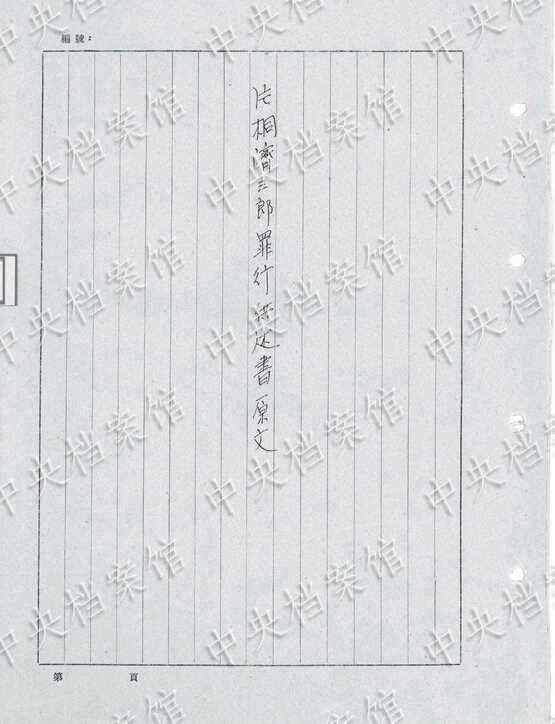 編號：
片桐濟三郎罪行供述書原文
第 頁
中央档案馆